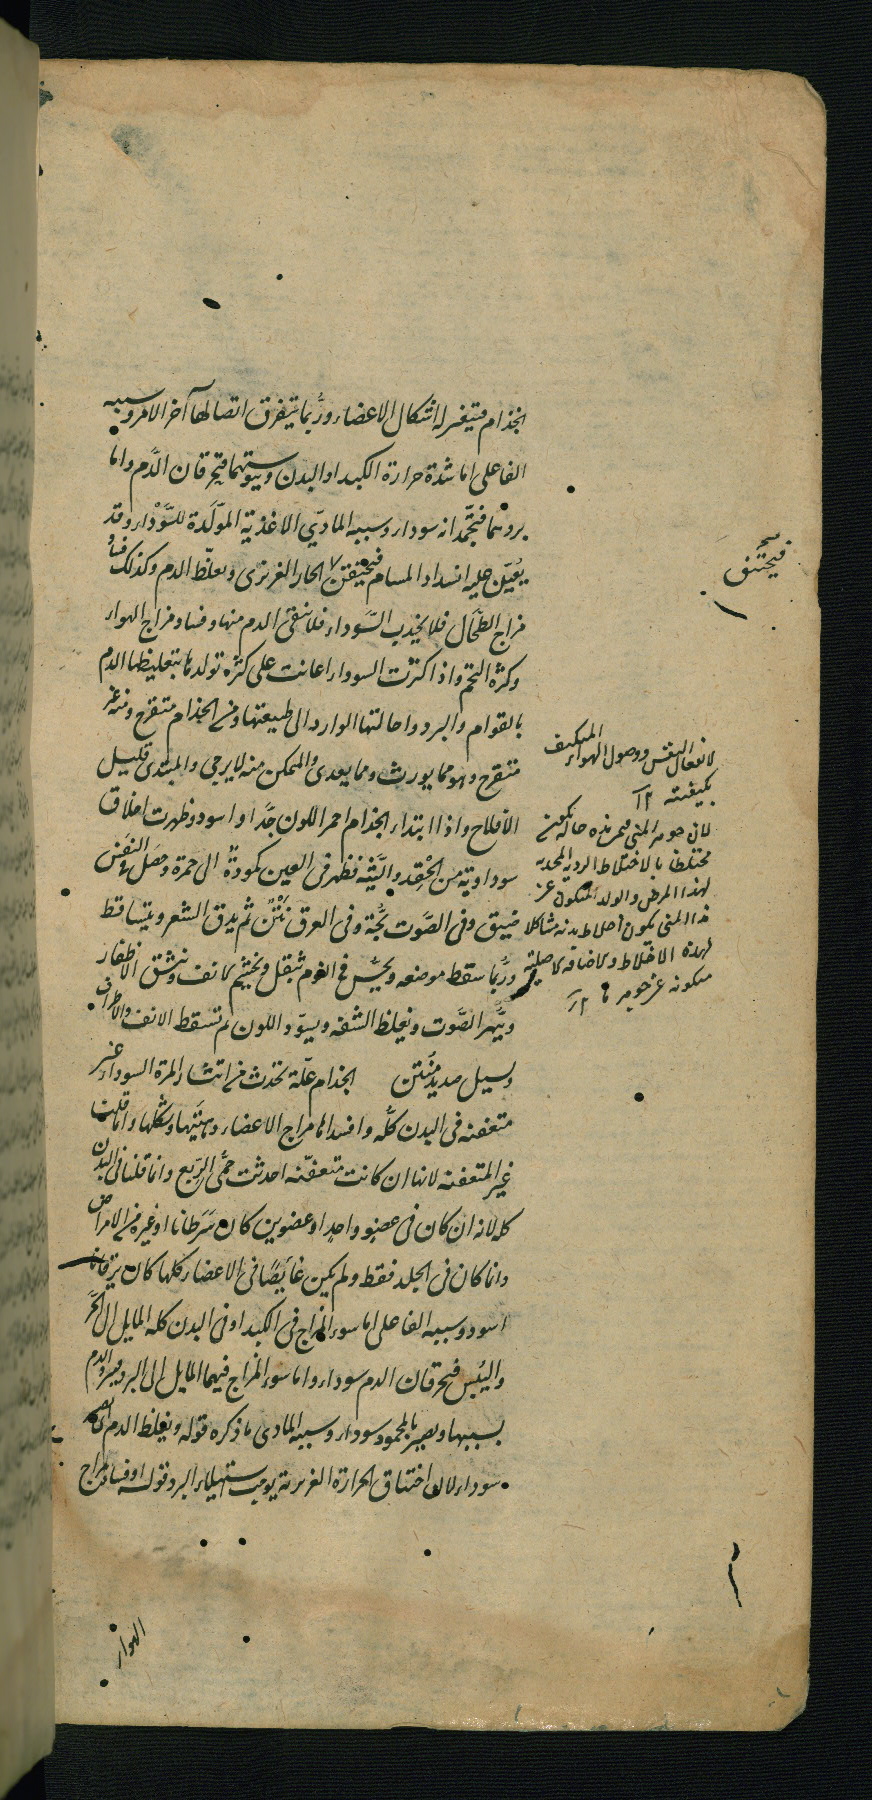 الجذام فيتغير له اشكال الاعضاء وربما يتفرق اتصالها آخر الامر وسببه
الفاعلى اما شدة حرارة الكبد او البدن ويبوستهما فتحرقان الدم واما
بردهما فتجمدانه سوداء وسببه المادّى الاغذية المولّدة للسَّوداء وقد
يعين عليه انسداد المسام فيختنق الحار الغريزى ويغلظ الدم وكذلك فساد
مزاج الطحال فلا يجذب السَّوداء فلا ينقى الدم منها وفساد مزاج الهواء
وكثرة التخم واذا كثرت السوداء اعانت على كثرة تولدها بتغليظها الدم
بالقوام والبرد واحالتها الوارد الى طبيعتها ومن الجذام متقرح ومنه غير
متقرح وهو مما يورث ومما يعدى والمتمكن منه لا يرجى والمبتدى قليل
الافلاح واذا ابتداء الجذام احمر اللون جدًّا او اسود وظهرت اخلاق
سوداوية من الحقد والتّيه فظهر فى العين كمودةٌ الى حمرة وحصل فى النفَس
ضيق وفى الصَّوت بُحَّة وفى العرق نَتْنٌ ثم يدق الشعر ويتساقط
وربما سقط موضعه ويحُس فى النوم بثقل ويخثم الانف وينشق الاظفار
ويبهر الصَّوت ويغلظ الشفه ويسوّد اللون ثم تسقط الانف والاطراف
ويسيل صديد مُنتن الجذام علّة تحدث من انتشار المرة السوداء غير
متعفنه فى البدن كلّه وافسدا لها مزاج الاعضاء وهيئتها وشكلها وانما قلت
غير المتعفنه لانها ان كانت متعفّنه احدثت حمَّى الرّبع وانما قلنا فى البدن
كله لانه ان كان فى عضو واحدٍ او عضوين كان سَرَطانا او غيره من الامراض
وانما كان فى الجلد فقط ولم يكن غائصًا فى الاعضاء كلها كان يرقانا
اسود وسببه الفاعلى اما سوء المزاج فى الكبد او فى البدن كله المايل الى الحَرّ
واليُبس فيحرقان الدم سوداء واما سوء المزاج فيهما المايل الى البرد فيبرد الدم
بسببها ويصير بالجمود سوداء وسببه المادى ما ذكره قوله ويغلظ الدم
سوداء لان اختناق الحرارة الغريزية يوجب استيلاء البرد قوله او فساد مزاج
الهواء
فيختنق
لانفعال النفس ووصول الهواء المتكيف
بكيفيته ١٢
لان جوهر المنى من هذه حاله يكون
مختلطا بالاخلاط الردية المحدثه
لهذا المرض والولد المتكون عن
هذا المنى يكون اخلاط بدنه مشاكلا
لهذه الاخلاط